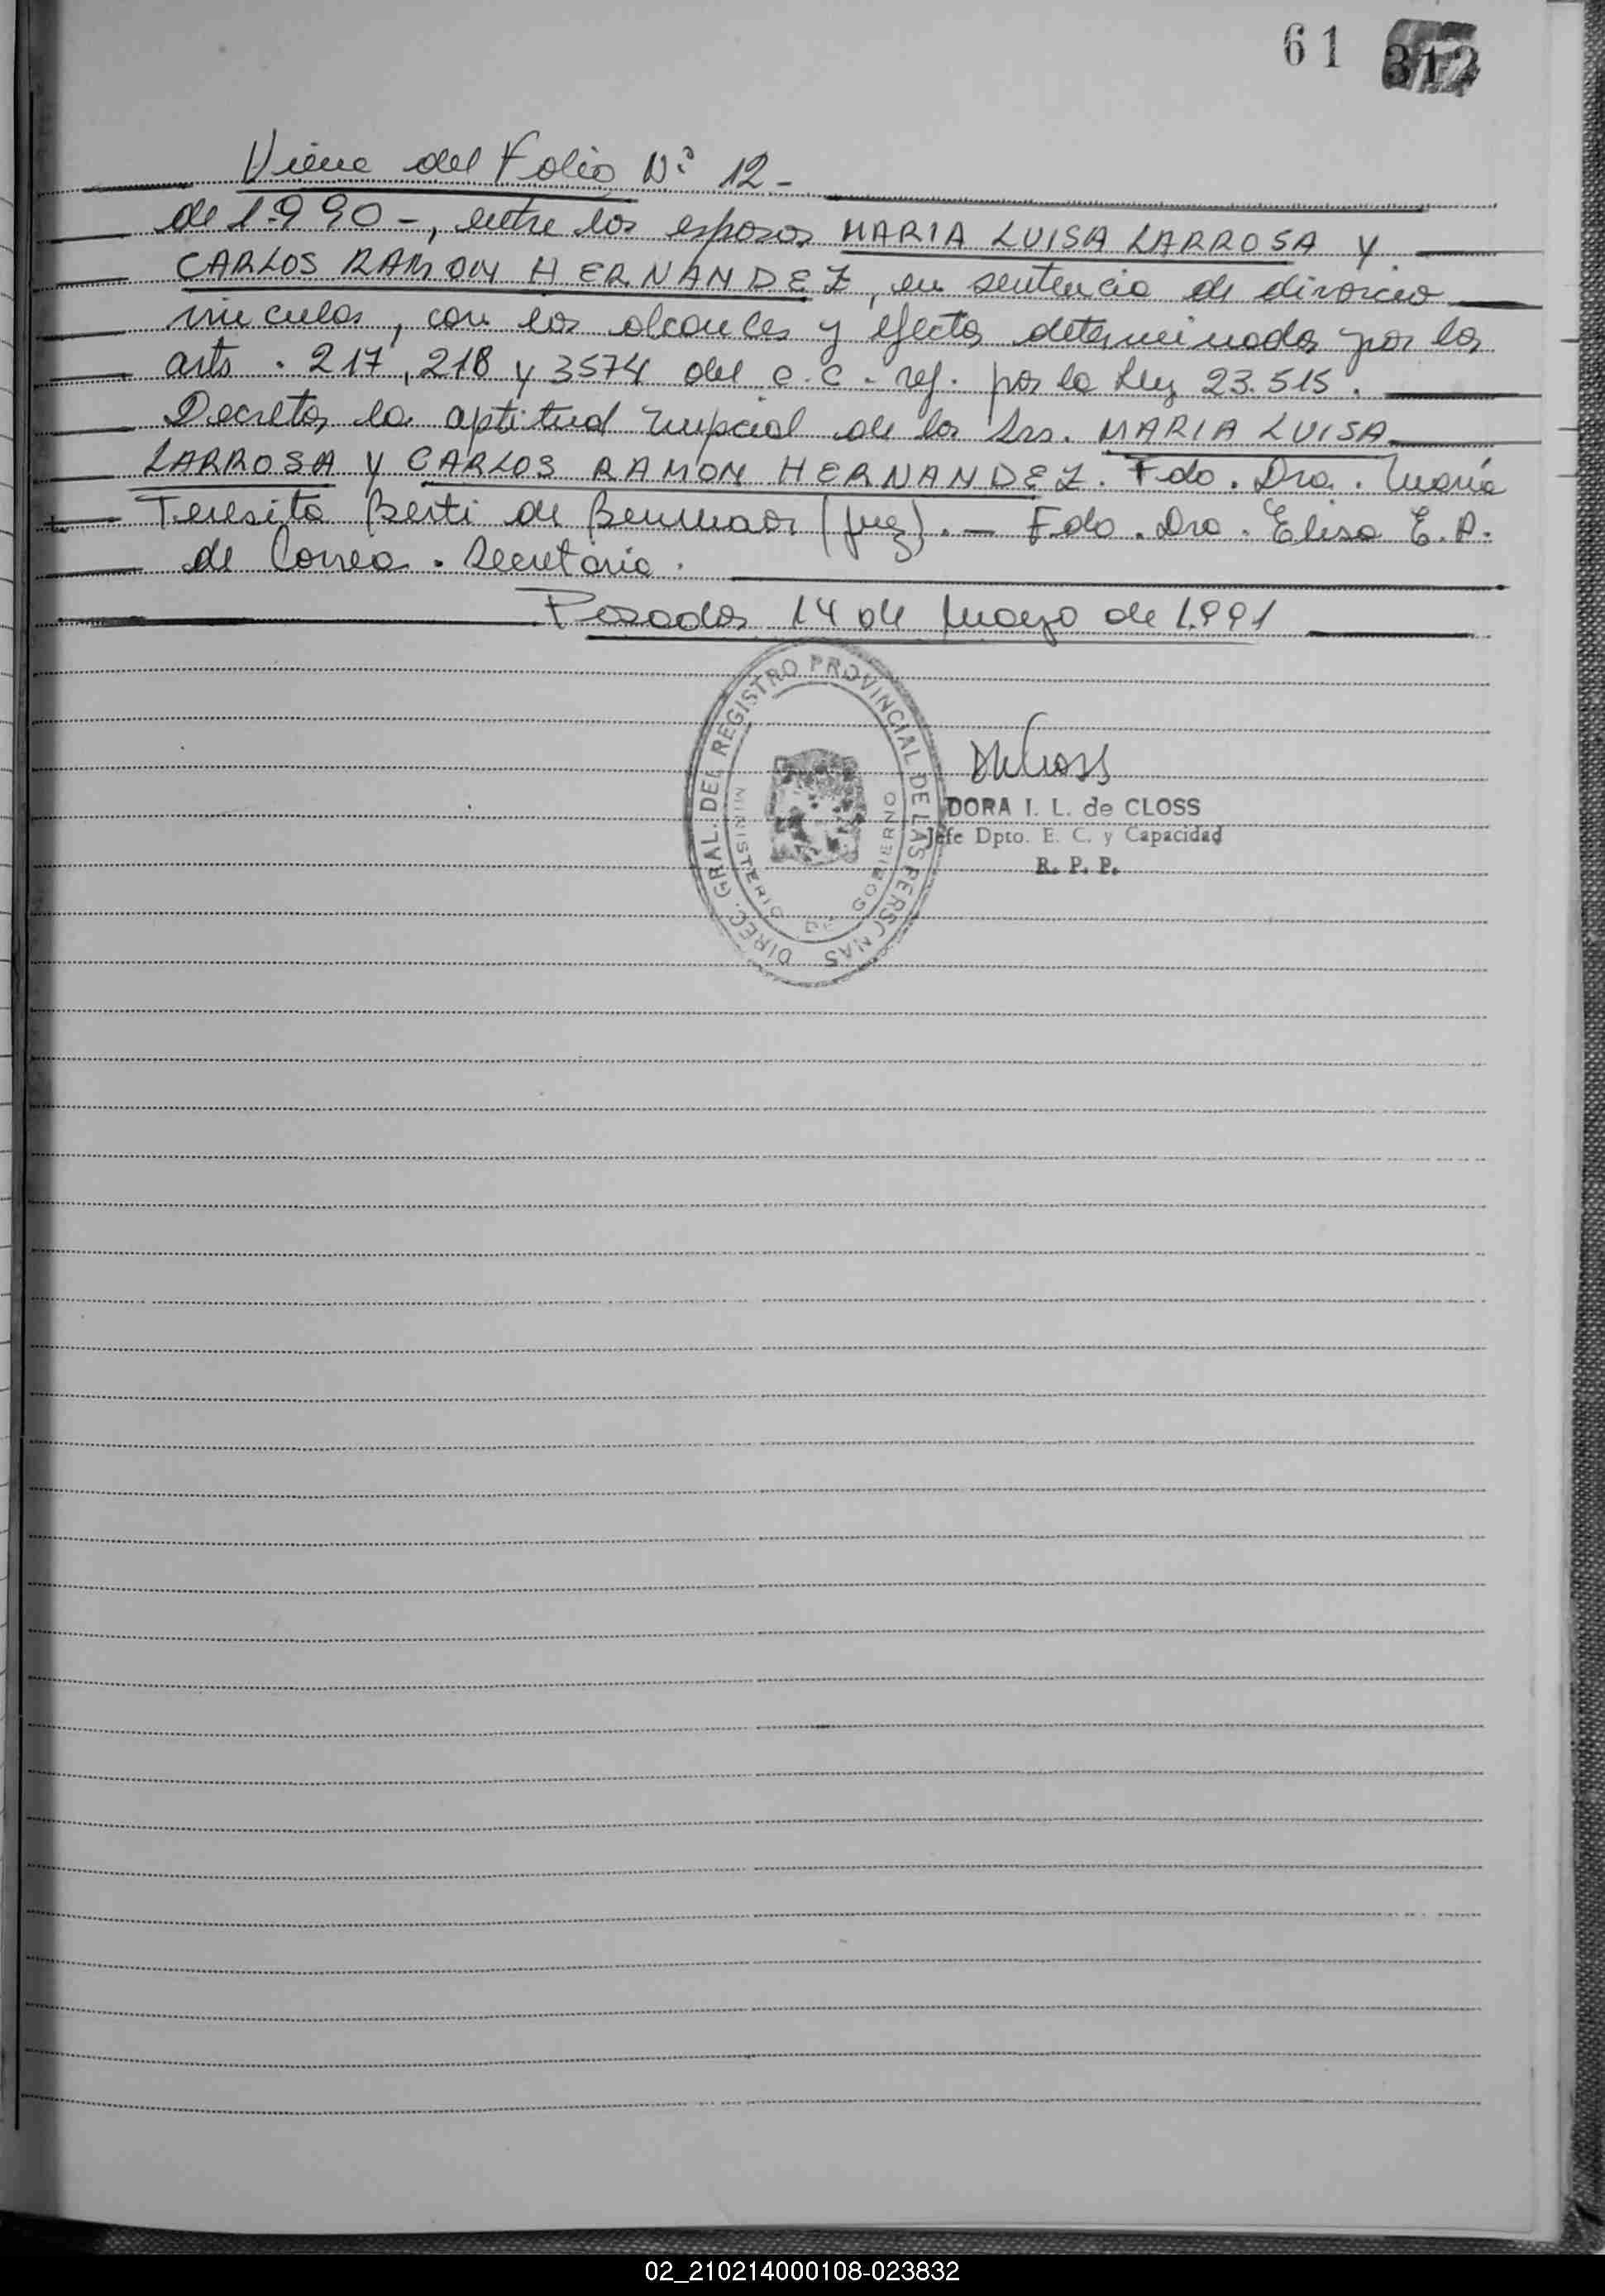 61 312
Viene del Folio Nº 12 -
de 1.990 -, entre los esposos MARIA LUISA LARROSA y
CARLOS RAMON HERNANDEZ, en sentencia de divorcio
vincular, con los alcances y efectos determinados por los
arts. 217, 218 y 3574 del C.C. ref. por la Ley 23.515.
Decretos la aptitud nupcial de los Srs. MARIA LUISA
LARROSA y CARLOS RAMON HERNANDEZ. Fdo. Dra. María
Teresita Berti de (Juez). - Fdo. Dra. Elisa E. P.
de Correa. Secretaria.
Posadas 14 de Mayo de 1.991
DIREC. GRAL. DEL REGISTRO PROVINCIAL DE LAS PERSONAS
MINISTERIO DE GOBIERNO
DORA I. L. de CLOSS
Jefe Dpto. E. C. y Capacidad
R. P. P.
02_210214000108-023832